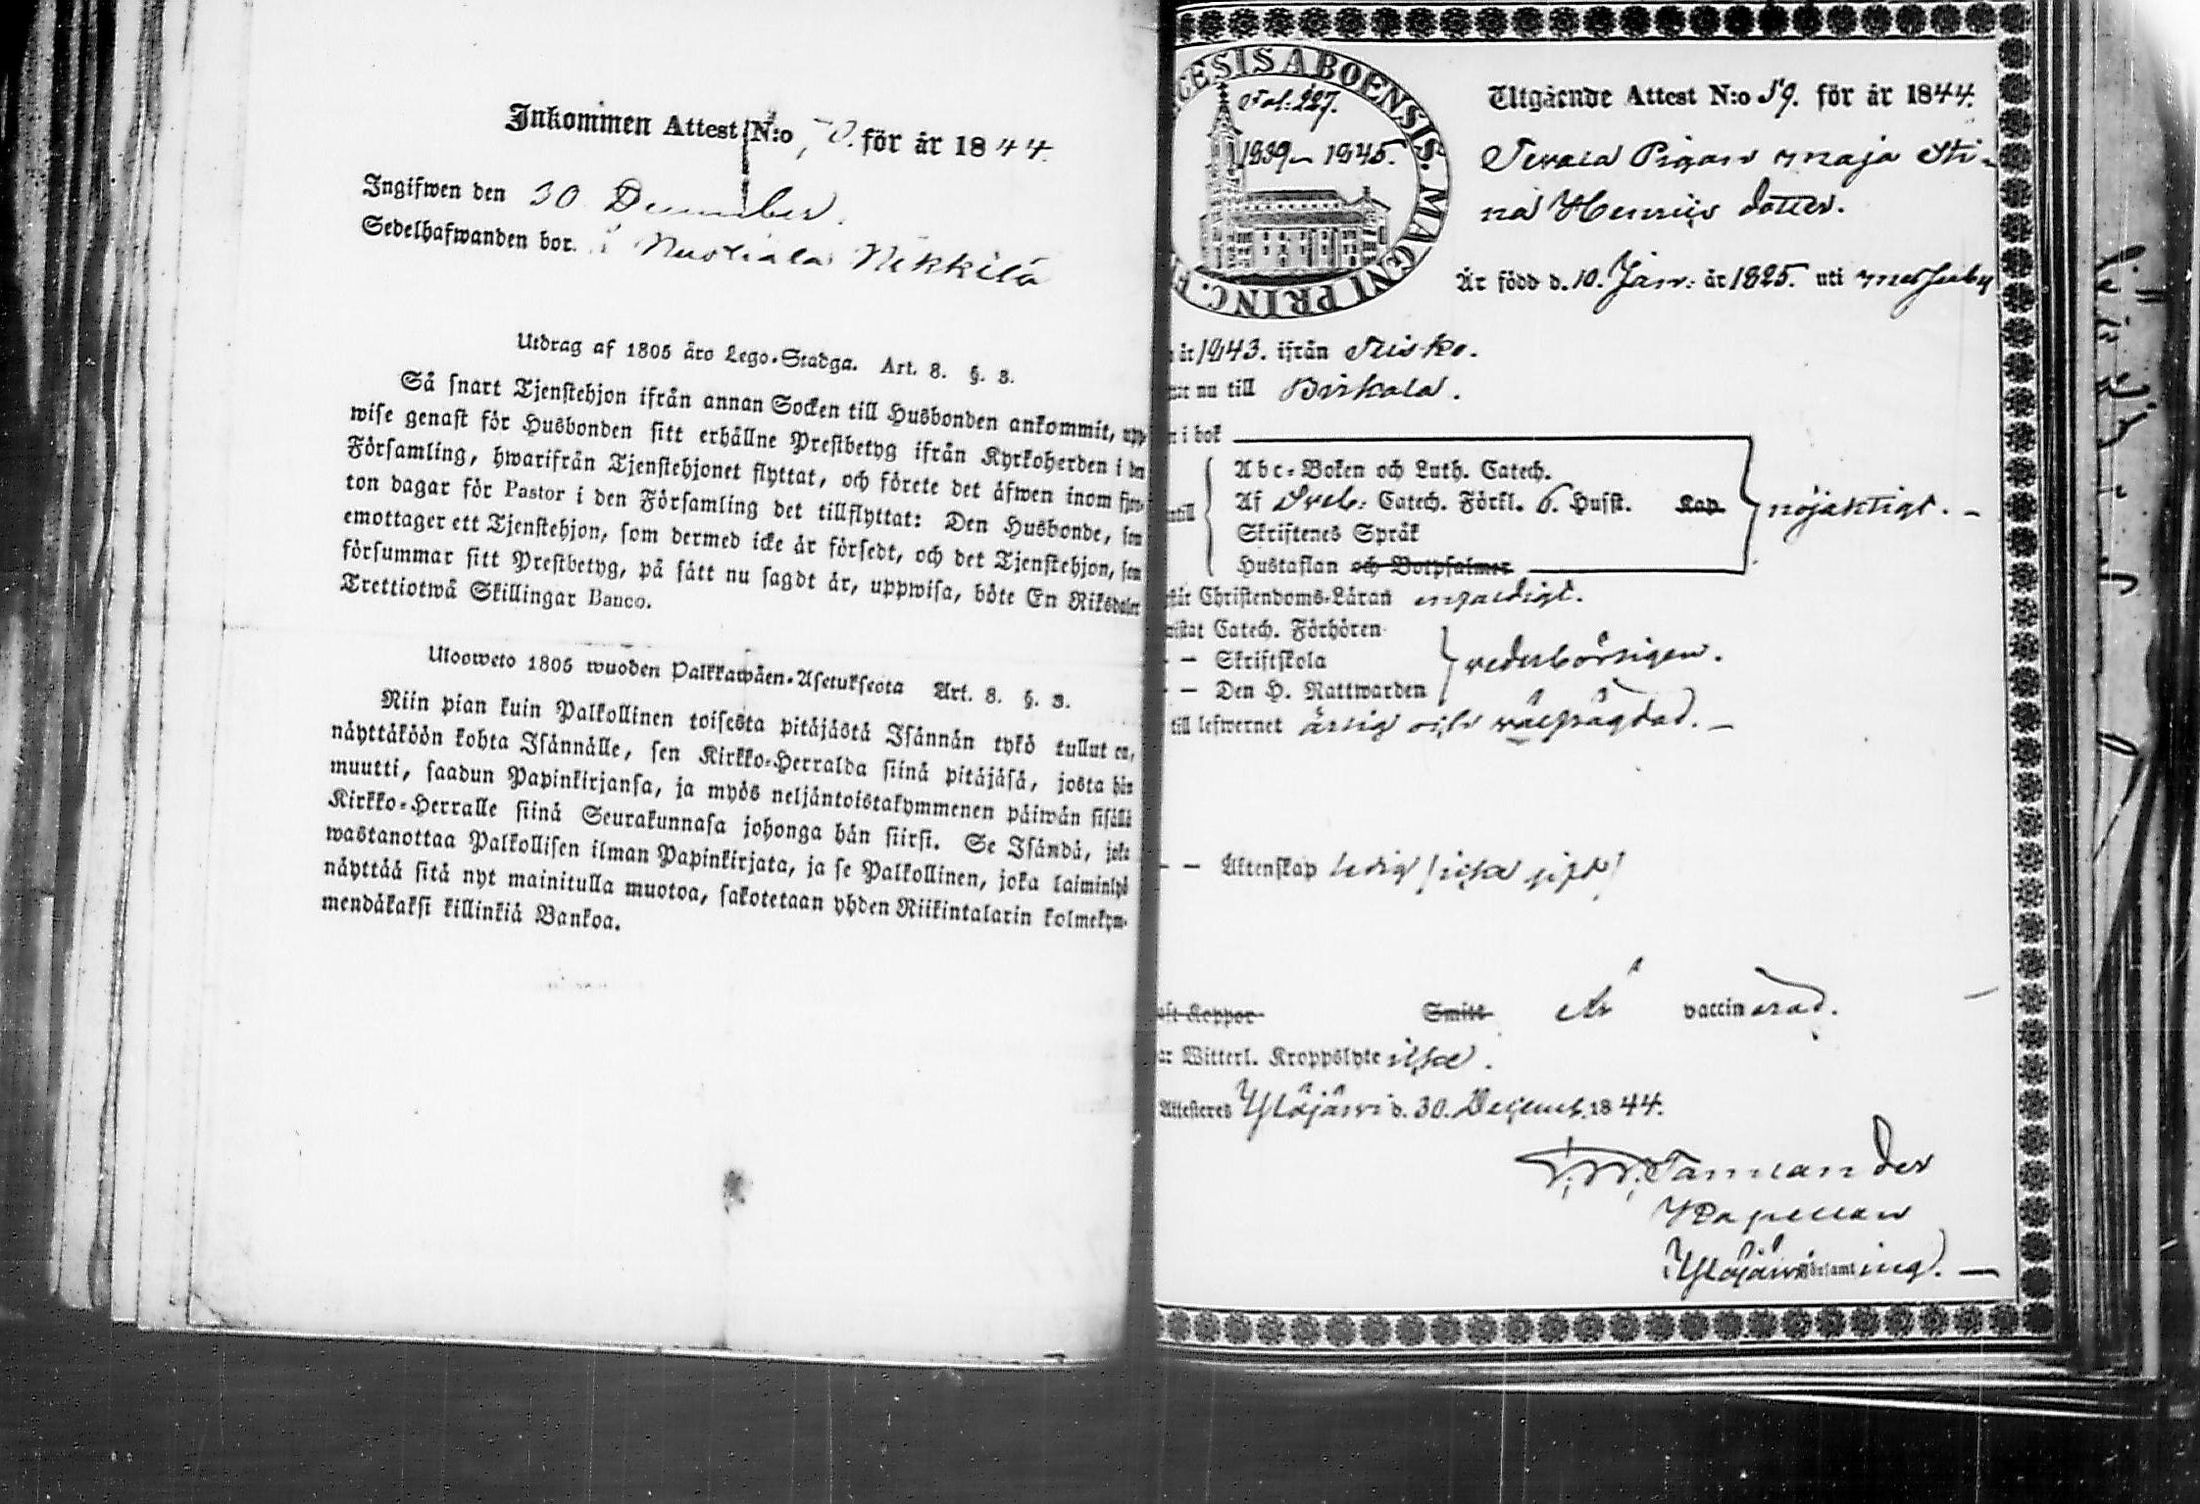 Inkommen Attest N:o för år 1844.
Ingifwen den 30 December.
Sedelhafwanden bor. i Nuoliala Nikkilä
Utdrag af 1805 års Lego-Stadga. Art. 8. §. 3.
Så snart Tjenstehjon ifrån annan Socken till Husbonden ankommit, upp-
wise genast för Husbonden sitt erhållne Prestbetyg ifrån Kyrkoherden i den
Församling, hwarifrån Tjenstehjonet flyttat, och förete det äfwen inom fjor-
ton dagar för Pastor i den Församling det tillflyttat: Den Husbonde, som
emottager ett Tjenstehjon, som dermed icke är försedt, och det Tjenstehjon, som
försummar sitt Prestbetyg, på sätt nu sagdt är, uppwisa, böte En Riksdaler
Trettiotwå Skillingar Banco.
Ulosweto 1805 wuoden Palkkawäen-Asetuksesta Art. 8. §. 3.
Niin pian kuin Palkollinen toisesta pitäjästä Isännän tykö tullut on,
näyttäköön kohta Isännälle, sen Kirkko-Herralda siinä pitäjäsä, josta hän
muutti, saadun Papinkirjansa, ja myös neljäntoistakymmenen päiwän sisällä
Kirkko-Herralle siinä Seurakunnasa johonga hän siirsi. Se Isändä, joka
wastanottaa Palkollisen ilman Papinkirjata, ja se Palkollinen, joka laiminlyö
näyttää sitä nyt mainitulla muotoa, sakotetaan yhden Riikintalarin kolmekym-
mendäkaksi killinkiä Bankoa.
CESIS ABOENSIS. MAGNI PRINC. F
Fol: 227.
1839- 1845.
Utgående Attest N:o 59. för år 1844.
Pigan Maja Sti-
na Henrics dotter.
Är född d. 10. Jan: år 1825. uti Messuby
år 1843. ifrån
nu till Birkala.
i bok
Abc-Boken och Luth. Catech.
Af Sveb: Catech. Förkl. 6. Hufst. Kap
Skriftenes Språk
Hustaflan och Botpsalmer
nöjaktigt. -
Christendoms-Läran
Catech. Förhören
- - Skriftskola
- - Den H. Nattwarden
wederbörligen.
till lefwernet ärlig och wälfrägdad. -
- - Äktenskap ledig /icke gift/
Koppor Smitt Är vaccinerad.
Witterl. Kroppslyte icke.
Attesteres Ylöjärwi d. 30. Decemb. 1844.
Tamlander
Kapellan
Ylöjärwi Församling. -